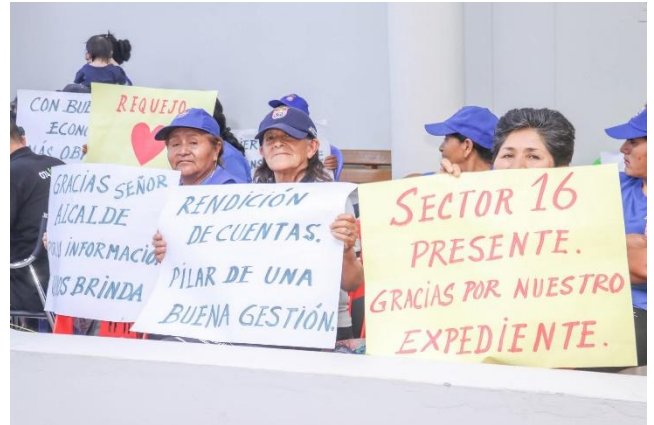 CON BUE
ECON
MÁS OB
REQUEJO
GRACIAS SEÑOR
ALCALDE
INFORMACIÓ
NOS BRINDA
RENDICIÓN
DE CUENTAS.
PILAR DE UNA
BUENA GESTIÓN.
SECTOR 16
PRESENTE.
GRACIAS POR NUESTRO
EXPEDIENTE.